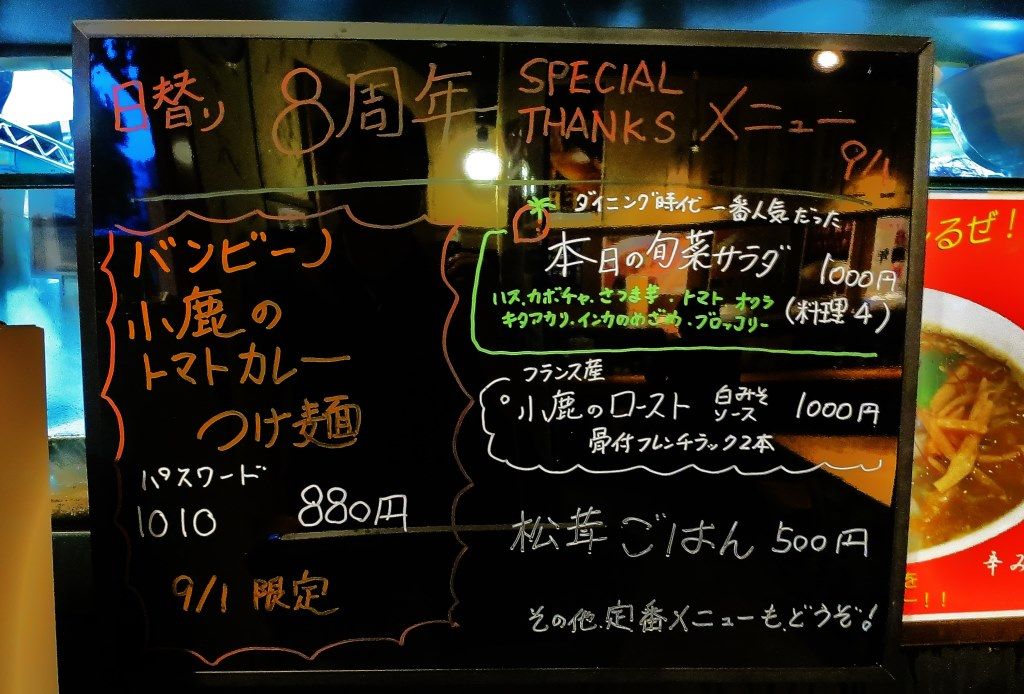 日替り 8周年 SPECIAL THANKS メニュー
9/1
バンビーノ
小鹿の
トマトカレー
つけ麺
パスワード
1010 880円
9/1 限定
ダイニング時代 一番人気だった
本日の旬菜サラダ 1000円
ハス.カボチャ.さつま芋.トマト オクラ
キタアカリ.インカのめざめ.ブロッコリー
(料理4)
フランス産
小鹿のロースト 白みそソース 1000円
骨付フレンチラック2本
松茸ごはん 500円
その他.定番メニューも.どうぞ!
るぜ!
辛み
を
!!